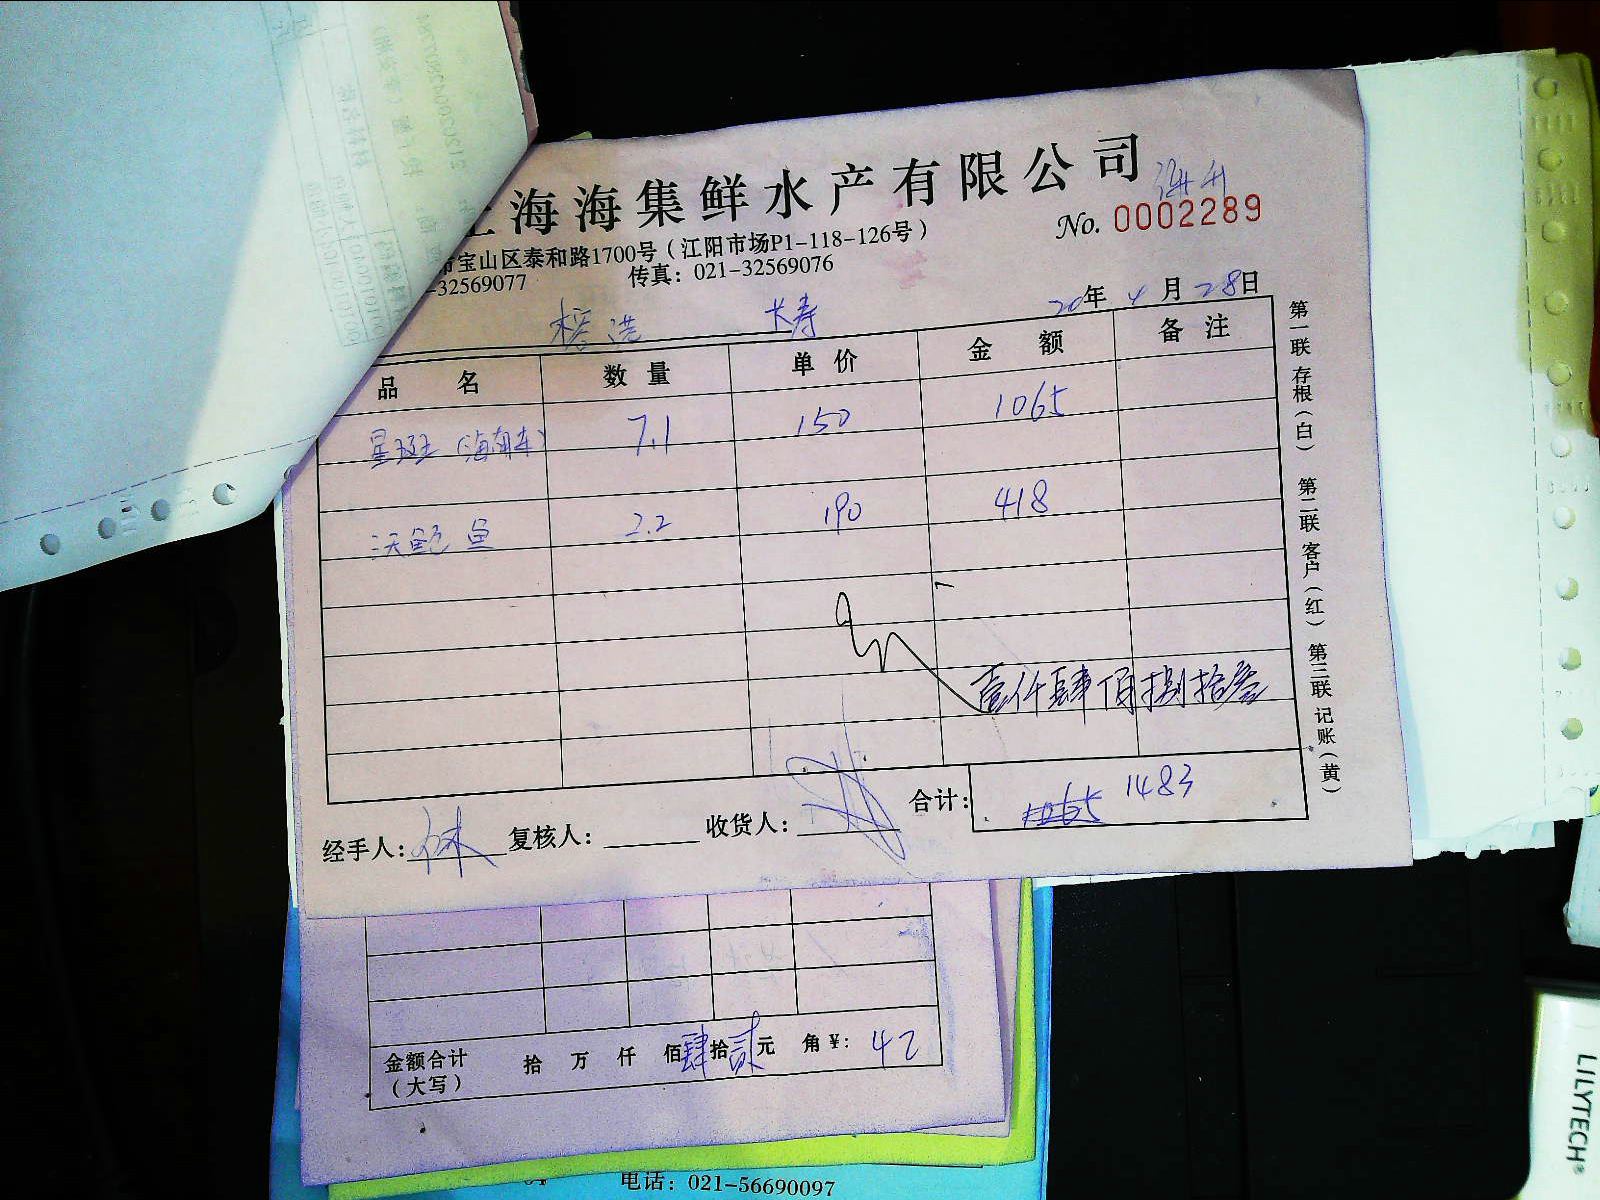 海海集鲜水产有限公司
No. 0002289
宝山区泰和路1700号（江阳市场P1-118-126号）
-32569077 传真：021-32569076
榕港 长寿
20年 4月 28日
品 名 数 量 单 价 金 额 备 注
星斑（海南车） 7.1 150 1065
鲍鱼 2.2 190 418
壹仟肆佰捌拾叁
合计： 1065 1483
经手人： 复核人： 收货人：
第一联 存根（白） 第二联 客户（红） 第三联 记账（黄）
金额合计 拾 万 仟 佰 肆拾贰元 角 ¥： 42
（大写）
电话：021-56690097
LILYTECH®